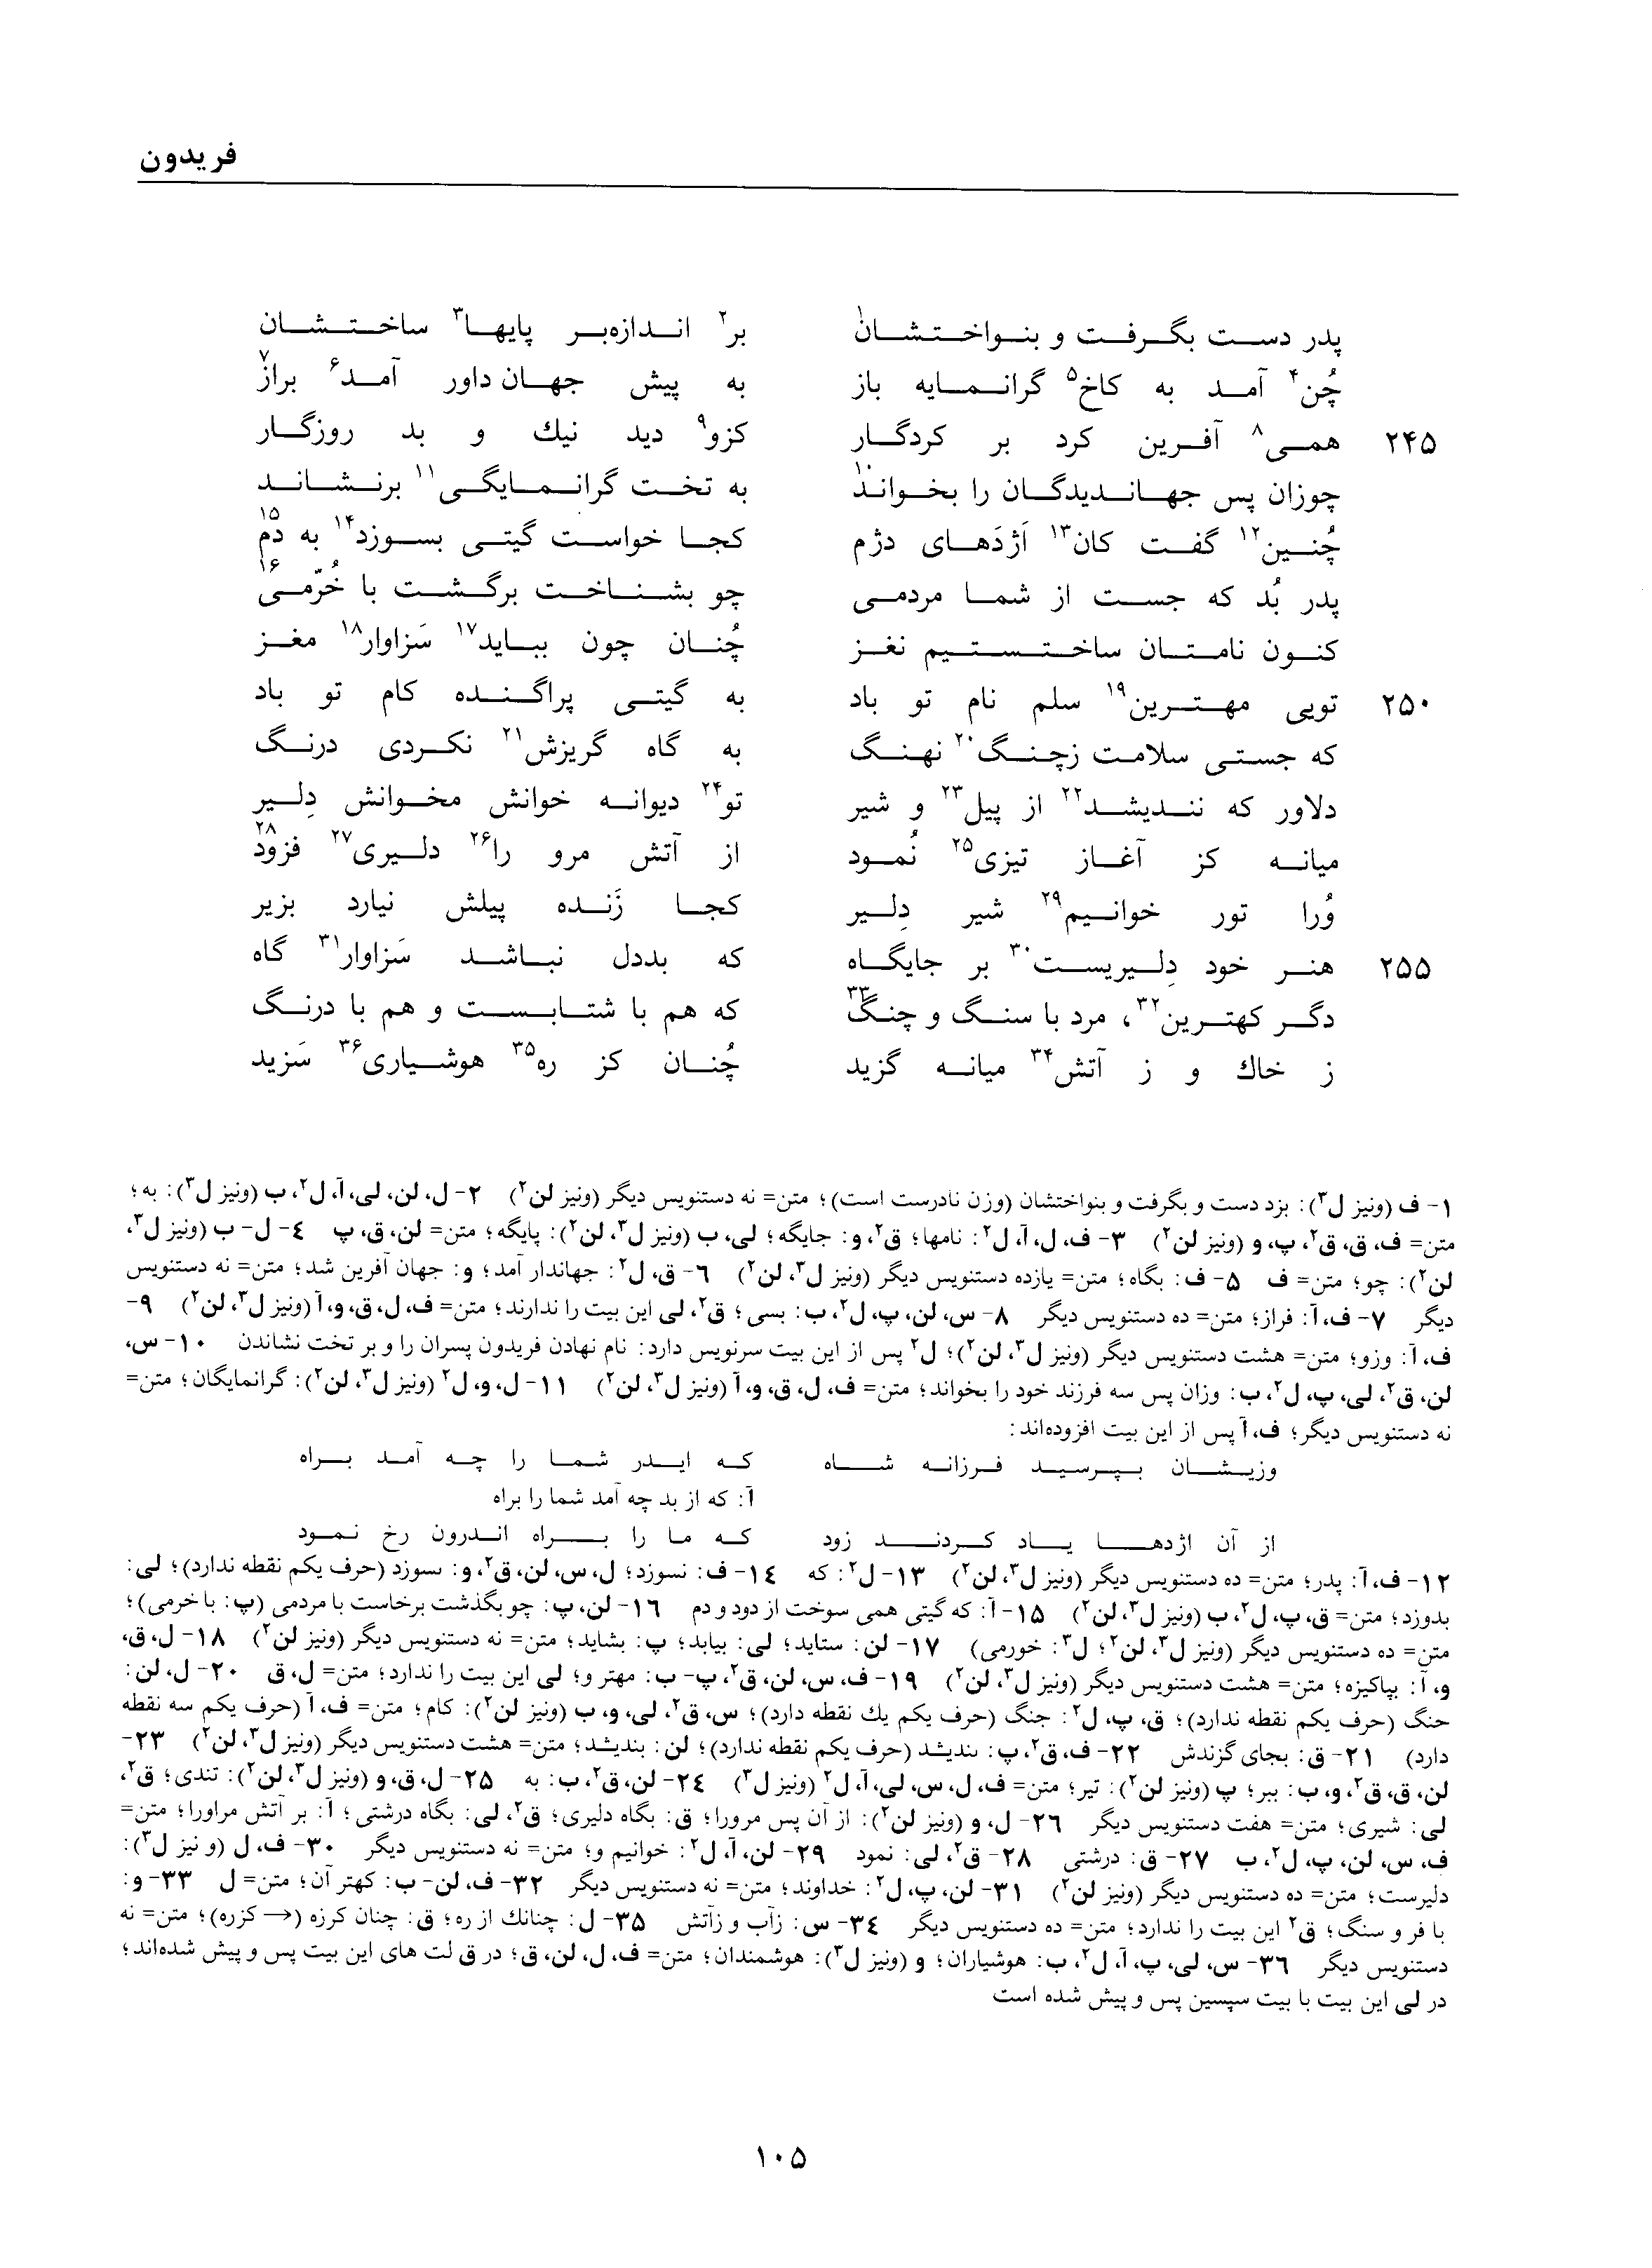 فریدون
پدر دست بگرفت و بنواختشان۱ بر۲ اندازه‌بر پایها۳ ساختشان
چُن۴ آمد به کاخ۵ گرانمایه باز به پیش جهان‌داور آمد۶ براز۷
۲۴۵ همی۸ آفرین کرد بر کردگار کزو۹ دید نیك و بد روزگار
چوزان پس جهاندیدگان را بخواند۱۰ به تخت گرانمایگی۱۱ برنشاند
چُنین۱۲ گفت کان۱۳ اَژدَهای دژم کجا خواست گیتی بسوزد۱۴ به دَم۱۵
پدر بُد که جست از شما مردمی چو بشناخت برگشت با خُرّمی۱۶
کنون نامتان ساختستیم نغز چُنان چون بباید۱۷ سَزاوار۱۸ مغز
۲۵۰ تویی مهترین۱۹ سلم نام تو باد به گیتی پراگنده کام تو باد
که جستی سلامت زچنگ۲۰ نهنگ به گاه گریزش۲۱ نکردی درنگ
دلاور که نندیشد۲۲ از پیل۲۳ و شیر تو۲۴ دیوانه خوانش مخوانش دِلیر
میانه کز آغاز تیزی۲۵ نُمود از آتش مرو را۲۶ دلیری۲۷ فزود۲۸
وُرا تور خوانیم۲۹ شیر دِلیر کجا زَنده پیلش نیارد بزیر
۲۵۵ هنر خود دِلیریست۳۰ بر جایگاه که بددل نباشد سَزاوار۳۱ گاه
دگر کهترین۳۲، مرد با سنگ و چنگ۳۳ که هم با شتابست و هم با درنگ
ز خاك و ز آتش۳۴ میانه گزید چُنان کز ره۳۵ هوشیاری۳۶ سَزید
۱- ف (ونیز ل۳): بزد دست و بگرفت و بنواختشان (وزن نادرست است)؛ متن= نه دستنویس دیگر (ونیز لن۲) ۲- ل، لن، لی، آ، ل۲، ب (ونیز ل۳): به؛
متن= ف، ق، ق۲، پ، و (ونیز لن۲) ۳- ف، ل، آ، ل۲: نامها؛ ق۲، و: جایگه؛ لی، ب (ونیز ل۳، لن۲): پایگه؛ متن= لن، ق، پ ۴- ل- ب (ونیز ل۳،
لن۲): چو؛ متن= ف ۵- ف: بگاه؛ متن= یازده دستنویس دیگر (ونیز ل۳، لن۲) ۶- ق، ل۲: جهاندار آمد؛ و: جهان آفرین شد؛ متن= نه دستنویس
دیگر ۷- ف، آ: فراز؛ متن= ده دستنویس دیگر ۸- س، لن، پ، ل۲، ب: بسی؛ ق۲، لی این بیت را ندارند؛ متن= ف، ل، ق، و، آ (ونیز ل۳، لن۲) ۹-
ف، آ: وزو؛ متن= هشت دستنویس دیگر (ونیز ل۳، لن۲)؛ ل۲ پس از این بیت سرنویس دارد: نام نهادن فریدون پسران را و بر تخت نشاندن ۱۰- س،
لن، ق۲، لی، پ، ل۲، ب: وزان پس سه فرزند خود را بخواند؛ متن= ف، ل، ق، و، آ (ونیز ل۳، لن۲) ۱۱- ل، و، ل۲ (ونیز ل۳، لن۲): گرانمایگان؛ متن=
نه دستنویس دیگر؛ ف، آ پس از این بیت افزوده‌اند:
وزیشان بپرسید فرزانه شاه که ایدر شما را چه آمد براه
آ: که از بد چه آمد شما را براه
از آن اژدها یاد کردند زود که ما را براه اندرون رخ نمود
۱۲- ف، آ: پدر؛ متن= ده دستنویس دیگر (ونیز ل۳، لن۲) ۱۳- ل۲: که ۱۴- ف: نسوزد؛ ل، س، لن، ق۲، و: ىسوزد (حرف یکم نقطه ندارد)؛ لی:
بدوزد؛ متن= ق، پ، ل۲، ب (ونیز ل۳، لن۲) ۱۵- آ: که گیتی همی سوخت از دود و دم ۱۶- لن، پ: چو بگذشت برخاست با مردمی (پ: با خرمی)؛
متن= ده دستنویس دیگر (ونیز ل۳، لن۲؛ ل۳: خورمی) ۱۷- لن: ستاید؛ لی: بیابد؛ پ: بشاید؛ متن= نه دستنویس دیگر (ونیز لن۲) ۱۸- ل، ق،
و، آ: بپاکیزه؛ متن= هشت دستنویس دیگر (ونیز ل۳، لن۲) ۱۹- ف، س، لن، ق۲، پ- ب: مهتر و؛ لی این بیت را ندارد؛ متن= ل، ق ۲۰- ل، لن:
حنگ (حرف یکم نقطه ندارد)؛ ق، پ، ل۲: جنگ (حرف یکم یك نقطه دارد)؛ س، ق۲، لی، و، ب (ونیز لن۲): کام؛ متن= ف، آ (حرف یکم سه نقطه
دارد) ۲۱- ق: بجای گزندش ۲۲- ف، ق۲، پ: ىندیشد (حرف یکم نقطه ندارد)؛ لن: بندیشد؛ متن= هشت دستنویس دیگر (ونیز ل۳، لن۲) ۲۳-
لن، ق، ق۲، و، ب: ببر؛ پ (ونیز لن۲): تیر؛ متن= ف، ل، س، لی، آ، ل۲ (ونیز ل۳) ۲۴- لن، ق۲، ب: به ۲۵- ل، ق، و (ونیز ل۳، لن۲): تندی؛ ق۲،
لی: شیری؛ متن= هفت دستنویس دیگر ۲۶- ل، و (ونیز لن۲): از آن پس مرورا؛ ق: بگاه دلیری؛ ق۲، لی: بگاه درشتی؛ آ: بر آتش مراورا؛ متن=
ف، س، لن، پ، ل۲، ب ۲۷- ق: درشتی ۲۸- ق۲، لی: نمود ۲۹- لن، آ، ل۲: خوانیم و؛ متن= نه دستنویس دیگر ۳۰- ف، ل (و نیز ل۳):
دلیرست؛ متن= ده دستنویس دیگر (ونیز لن۲) ۳۱- لن، پ، ل۲: خداوند؛ متن= نه دستنویس دیگر ۳۲- ف، لن- ب: کهتر آن؛ متن= ل ۳۳- و:
با فر و سنگ؛ ق۲ این بیت را ندارد؛ متن= ده دستنویس دیگر ۳۴- س: زآب و زآتش ۳۵- ل: چنانك از ره؛ ق: چنان کرزه (→ کزره)؛ متن= نه
دستنویس دیگر ۳۶- س، لی، پ، آ، ل۲، ب: هوشیاران؛ و (ونیز ل۳): هوشمندان؛ متن= ف، ل، لن، ق؛ در ق لت های این بیت پس و پیش شده‌اند؛
در لی این بیت با بیت سپسین پس و پیش شده است
۱۰۵